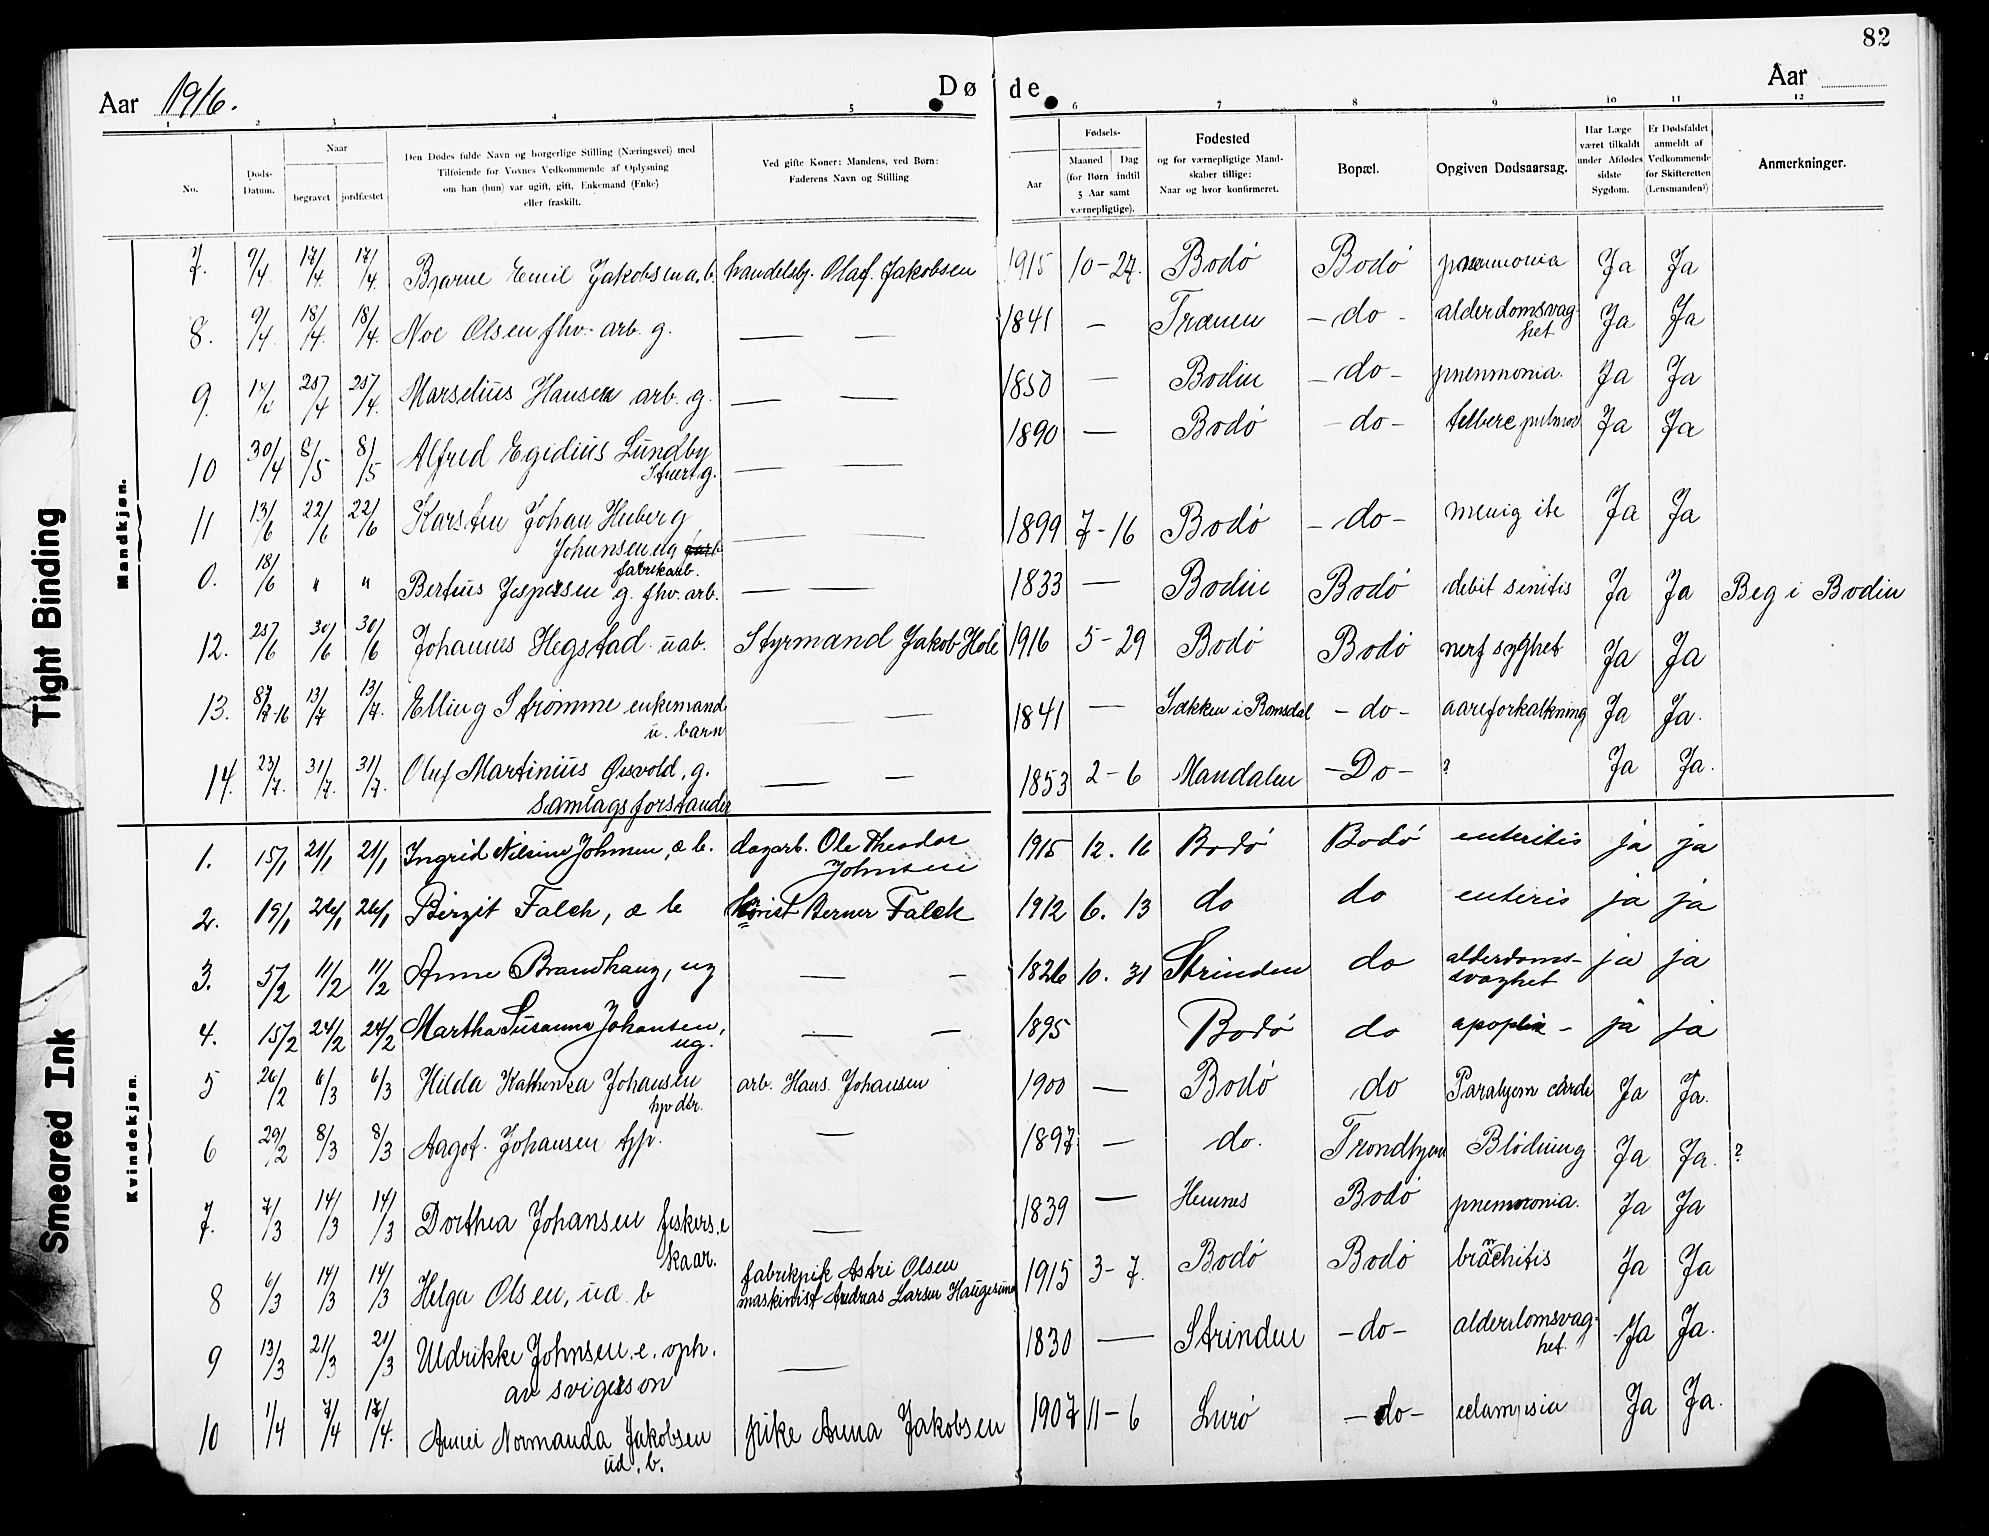 82
Aar 1916.
Døde
Aar
1 2 3 4 5 6 7 8 9 10 11 12
No.
Døds-Datum.
Naar
begravet
jordfæstet
Den Dødes fulde Navn og borgerlige Stilling (Næringsvei) med
Tilføiende for Voxnes Vedkommende af Oplysning
om han (hun) var ugift, gift, Enkemand (Enke)
eller fraskilt.
Ved gifte Koner: Mandens, ved Børn:
Faderens Navn og Stilling
Fødsels-
Aar
Maaned Dag
(for Børn indtil
5 Aar samt
værnepligtige).
Fødested
og for værnepligtige Mand-
skaber tillige:
Naar og hvor konfirmeret.
Bopæl.
Opgiven Dødsaarsag.
Har Læge
været tilkaldt
under Afdødes
sidste
Sygdom.
Er Dødsfaldet
anmeldt af
Vedkommende
for Skifteretten
(Lensmanden?)
Anmerkninger.
Mandkjøn.
7. 9/4 17/4 17/4 Bjarne Emil Jakobsen a. b. handelsbj. Olaf. Jakobsen 1915 10-27. Bodó Bodó pneumonia Ja Ja
8. 9/4 18/4 18/4 Noe Olsen fhv. arb. g. — — 1841 — Trænen -do- alderdomsvag-
het Ja Ja
9. 25/4 25/4 Marselius Hansen arb. g. — — 1850 — Bodin -do- pnenmonia. Ja Ja
10 30/4 8/5 8/5 Alfred Egidius Lundby
g. — — 1890 — Bodó -do- Ja Ja
11 13/6 22/6 22/6 Karsten Johan Heiberg
Johansen ug
fabrikarb. — — 1899 7-16 Bodó -do- menig ite Ja Ja
0. 18/6 " " Bertius Jespersen g. fhv. arb. — — 1833 — Bodin Bodó debit senitis Ja Ja Beg i Bodin
12. 25/6 30/6 30/6 Johannes Hegstad uab. Styrmand Jakob Hole 1916 5-29 Bodó Bodó Ja Ja
13. 13/7 13/7. Elling Strömme enkemand
u. barn — — 1841 — i Romsdal -do- aareforkalkning Ja Ja.
14. 23/7. 31/7. 31/7. Oluf Martinius Øisvold, g.
samlagsforstander — — 1853 2-6 Mandalen -Do- ? Ja Ja.
Kvindekjøn.
1. 15/1 21/1 21/1 Ingrid Nilsine Johnsen, æ b. dagarb. Ole Theodor
Johnsen 1915 12. 16 Bodó Bodó enteritis ja ja
2. 19/1 26/1 26/1 Birgit Falch, æ b Berner Falck 1912 6. 13 do do enteris ja ja
3. 5/2 11/2 11/2 Anne Brandhaug, ug — — 1826 10. 31 Strinden do alderdoms-
svaghet ja ja
4. 15/2 24/2 24/2 Martha Susanna Johansen,
ug. — — 1895 Bodó do apoplexi - ja ja
5 26/2 6/3 6/3 Hilda Kathinka Johansen
hjv dtr. arb. Hans Johansen 1900 — Bodó do Ja Ja.
6 29/2 8/3 8/3 Aagot. Johansen tjp. — 1897 — do. Trondhjem Blödning Ja Ja. ?
7. 7/3 14/3 14/3 Dorthea Johansen fiskers. e
kaar. — 1839 — Hemnes Bodó pnenmonia. Ja Ja
8 6/3 14/3 14/3 Helga Olsen, ud. b fabrikpik Astri Olsen
maskinist Andreas Larsen Haugesund 1915 3-7. Bodó Bodó Ja Ja
9 13/3 21/3 21/3 Uldrikke Johnsen. e. oph.
av svigersøn — 1830 — Strinden -do- alderdomsvag-
het. Ja Ja.
10 1/4 7/4 17/4. Normanda Jakobsen
ud. b. pike Anna Jakobsen 1907 11-6 Luró -do- eclampsia Ja Ja.
Tight Binding
Smeared Ink